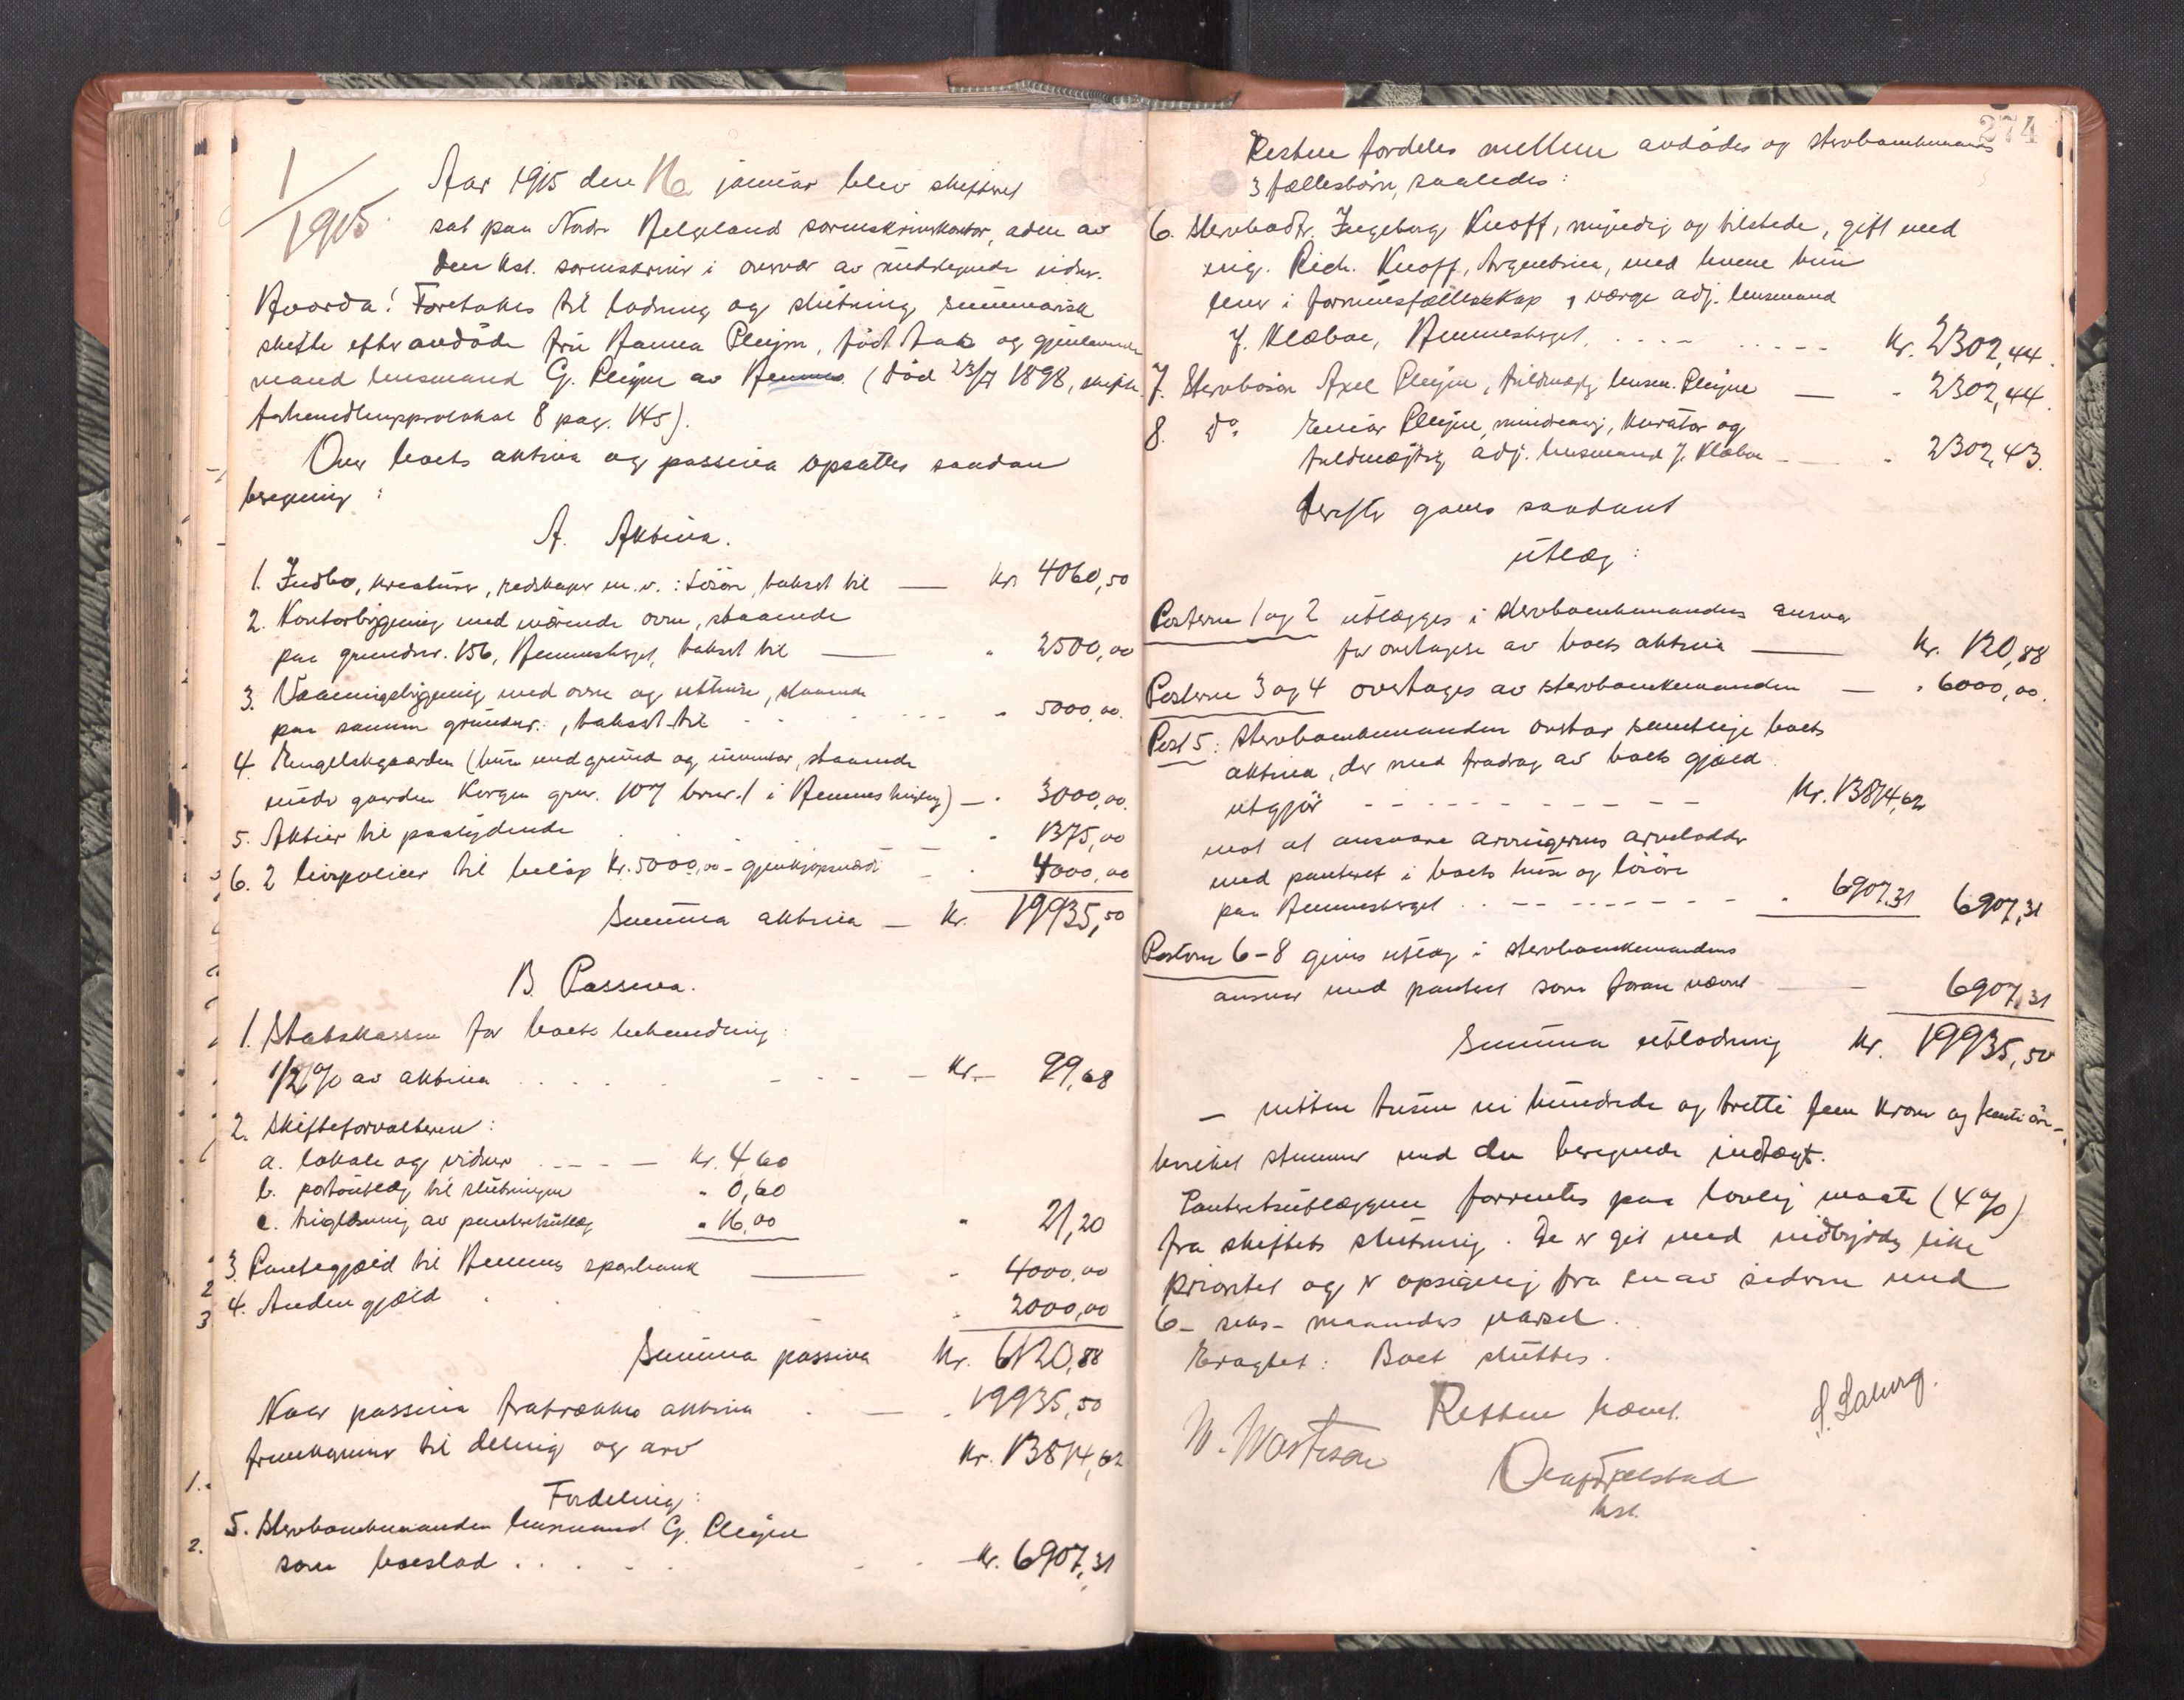 1/1915.
Aar 1915 den 16 januar blev skifteret
sat paa Nordr. Helgeland sorenskriverkontor, adm. av
den kst. sorenskriver i overvær av undertegnede vidner.
Hvorda: Foretokes til lodning og slutning summarisk
skifte efter avdöde fru Hanna Pleijm, född og gjenlevende
mand lensmand G. Pleijm av Hemnes. (död 23/7 1898, skifte
forhandlingsprotokol 8 pag. 145).
Over boets aktiva og passiva opsattes saadan
beregning:
A. Aktiva.
1. Indbo, kreaturer, redskaper m.v.: Lösöre, takset til — kr. 4060,50
2. Kontorbygning med værende ovne, staaende
paa grundnr. 156, Hemnesberget, takset til — " 2500,00
3. Vaaningsbygning med ovne og uthuse, staaende
paa samme grundnr., takset til - - - " 5000,00.
4. Engelskgaarden (hus med grund og inventar, staaende
under gaarden Korgen gnr. 107 brnr. 1 i Hemnes herred) — " 3000,00.
5. Aktier til paalydende . . - " 1375,00
6. 2 livspolicer til beløp kr. 5000,00 - gjenkjøpsværdi - " 4000,00
Summa aktiva — kr. 19935,50
B. Passiva.
1. Statskassen for boets behandling:
1/2 % av aktiva . . . . - - - kr. 99,68
2. Skifteforvalteren:
a. lokale og vidner - - - - kr. 4,60
b. portoutlæg til slutningen " 0,60
c. tinglæsning av panteretsutlæg " 16,00 " 21,20
3. Pantegjæld til Hemnes sparebank — " 4000,00
4. Anden gjæld . . " 2000,00
Summa passiva kr. 6120,88
Naar passiva fratrækkes aktiva . — " 19935,50
fremkommer til deling og arv kr. 13814,62
Fordeling:
5. Stervboenkemanden lensmand G. Pleijm
som boeslod . . . . . kr. 6907,31
274
Resten fordeles mellem avdödes og stervboenkemandens
3 fællesbörn, saaledes:
6. Stervbodtr. Ingeborg Knoff, myndig og tilstede, gift med
ing. Rich. Knoff, Argentina, med hvem hun
lever i formuesfællesskap, værge adj. lensmand
J. Klæboe, Hemnesberget. . . . - . - - - - kr. 2302,44.
7. Stervbosön Axel Pleijm, fuldmægtig lensm. Pleijm — " 2302,44.
8. do. Einar Pleijm, mindreaarig, kurator og
fuldmægtig adj. lensmand J. Klæboe - — " 2302,43.
Derefter gaves saadant
utlæg:
Posterne 1 og 2 utlægges i stervboenkemandens ansvar
for overtagelse av boets aktiva — kr. 120,88
Posterne 3 og 4 overtages av stervboenkemanden — " 6000,00.
Post 5: Stervboenkemanden overtar samtlige boets
aktiva, der med fradrag av boets gjæld
utgjör - - - - - - - - - - kr. 13814,62
mot at ansvare arvingernes arvelodder
med panteret i boets huse og lösöre
paa Hemnesberget . . - - - - - - - - " 6907,31 6907,31
Posterne 6-8 gives utlæg i stervboenkemandens
ansvar med panteret som foran nævnt — - 6907,31
Summa utlodning kr. 19935,50
— nitten tusen ni hundrede og tretti fem kroner og femti öre -,
hvilket stemmer med den beregnede indtægt.
Panteretsutlæggene forrentes paa lovlig maate (4 %)
fra skiftets slutning. De er git med indbyrdes like
prioritet og er opsigelig fra en av siderne med
6 - seks - maaneders varsel.
Eragtet: Boet sluttes.
Retten hævet.
Olaf Fjelstad
kst.